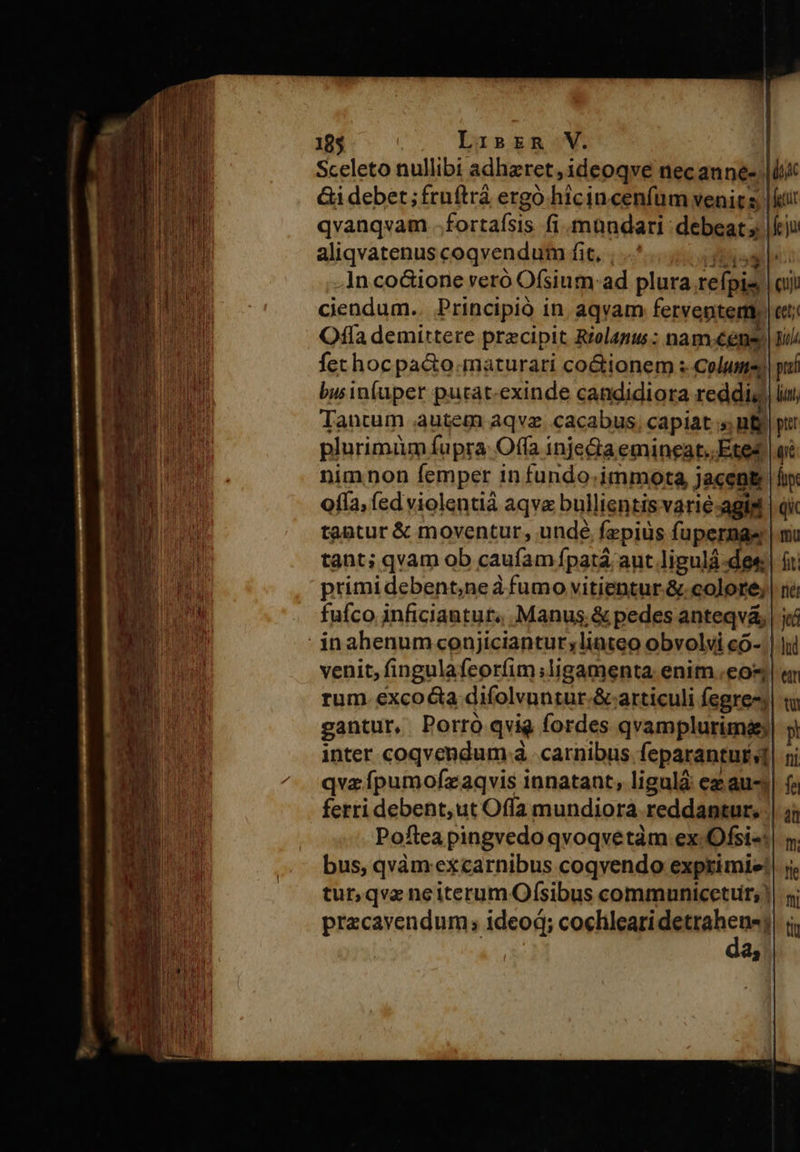 185 LIBER V.
Sceleto nullibi adhæret, ideoqve nec anne-
cti debet; fruſtrá ergò hîc in cenſum venit;
qvanqvam fortaſsis ſi mundari debeat,
aliqvatenus coqvendum ſit.
In coctione verò Oſsium ad plura reſpi-
ciendum. Principiò in aqvam ferventem
Oſſa demittere præcipit Riolanus: nam cen-
ſet hoc pacto maturari coctionem: Colum-
bus inſuper putat exinde candidiora reddi.
Tantum autem aqvæ cacabus capiat, ut
plurimùm ſupra Oſſa injecta emineat. Ete-
nim non ſemper in fundo immota jacent
oſſa, ſed violentiâ aqvæ bullientis variè agi-
tantur & moventur, undè ſæpiùs ſuperna-
tant; qvam ob cauſam ſpatá aut ligulâ de-
primi debent, ne à fumo vitientur & colore
fuſco inficiantur. Manus & pedes anteqvá
in ahenum conjiciantur, linteo obvolvi cõ-
venit, ſingula ſeorſim; ligamenta enim eo-
rum excocta diſolvuntur & articuli ſegre-
gantur. Porrò qvia ſordes qvamplurimæ
inter coqvendum à carnibus ſeparantur,
qvæ ſpumoſæ aqvis innatant, ligulâ eæ au-
ferri debent, ut Oſſa mundiora reddantur.
Poſtea pingvedo qvoqve tàm ex Oſsi-
bus, qvàm ex carnibus coqvendo exprimi-
tur, qvæ ne iterum Oſsibus communicetur,
præcavendum; ideoq; cochleari detrahen-
da,